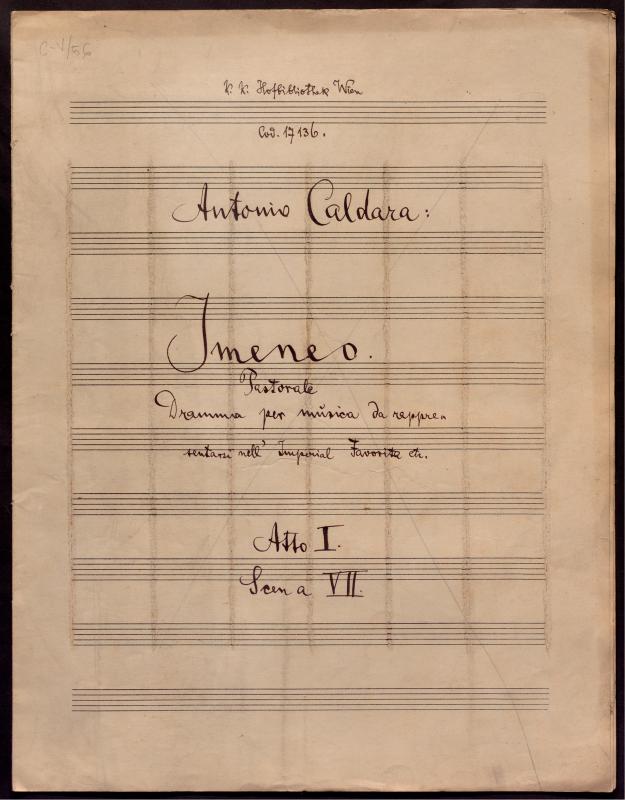 C-V/56
K. K. Hofbibliothek Wien
Cod. 17136.
Antonio Caldara:
Imeneo.
Pastorale
Dramma per mūsica da rappre-
sentarsi nell' Imperial Favorita etc.
Atto I.
Scena VII.